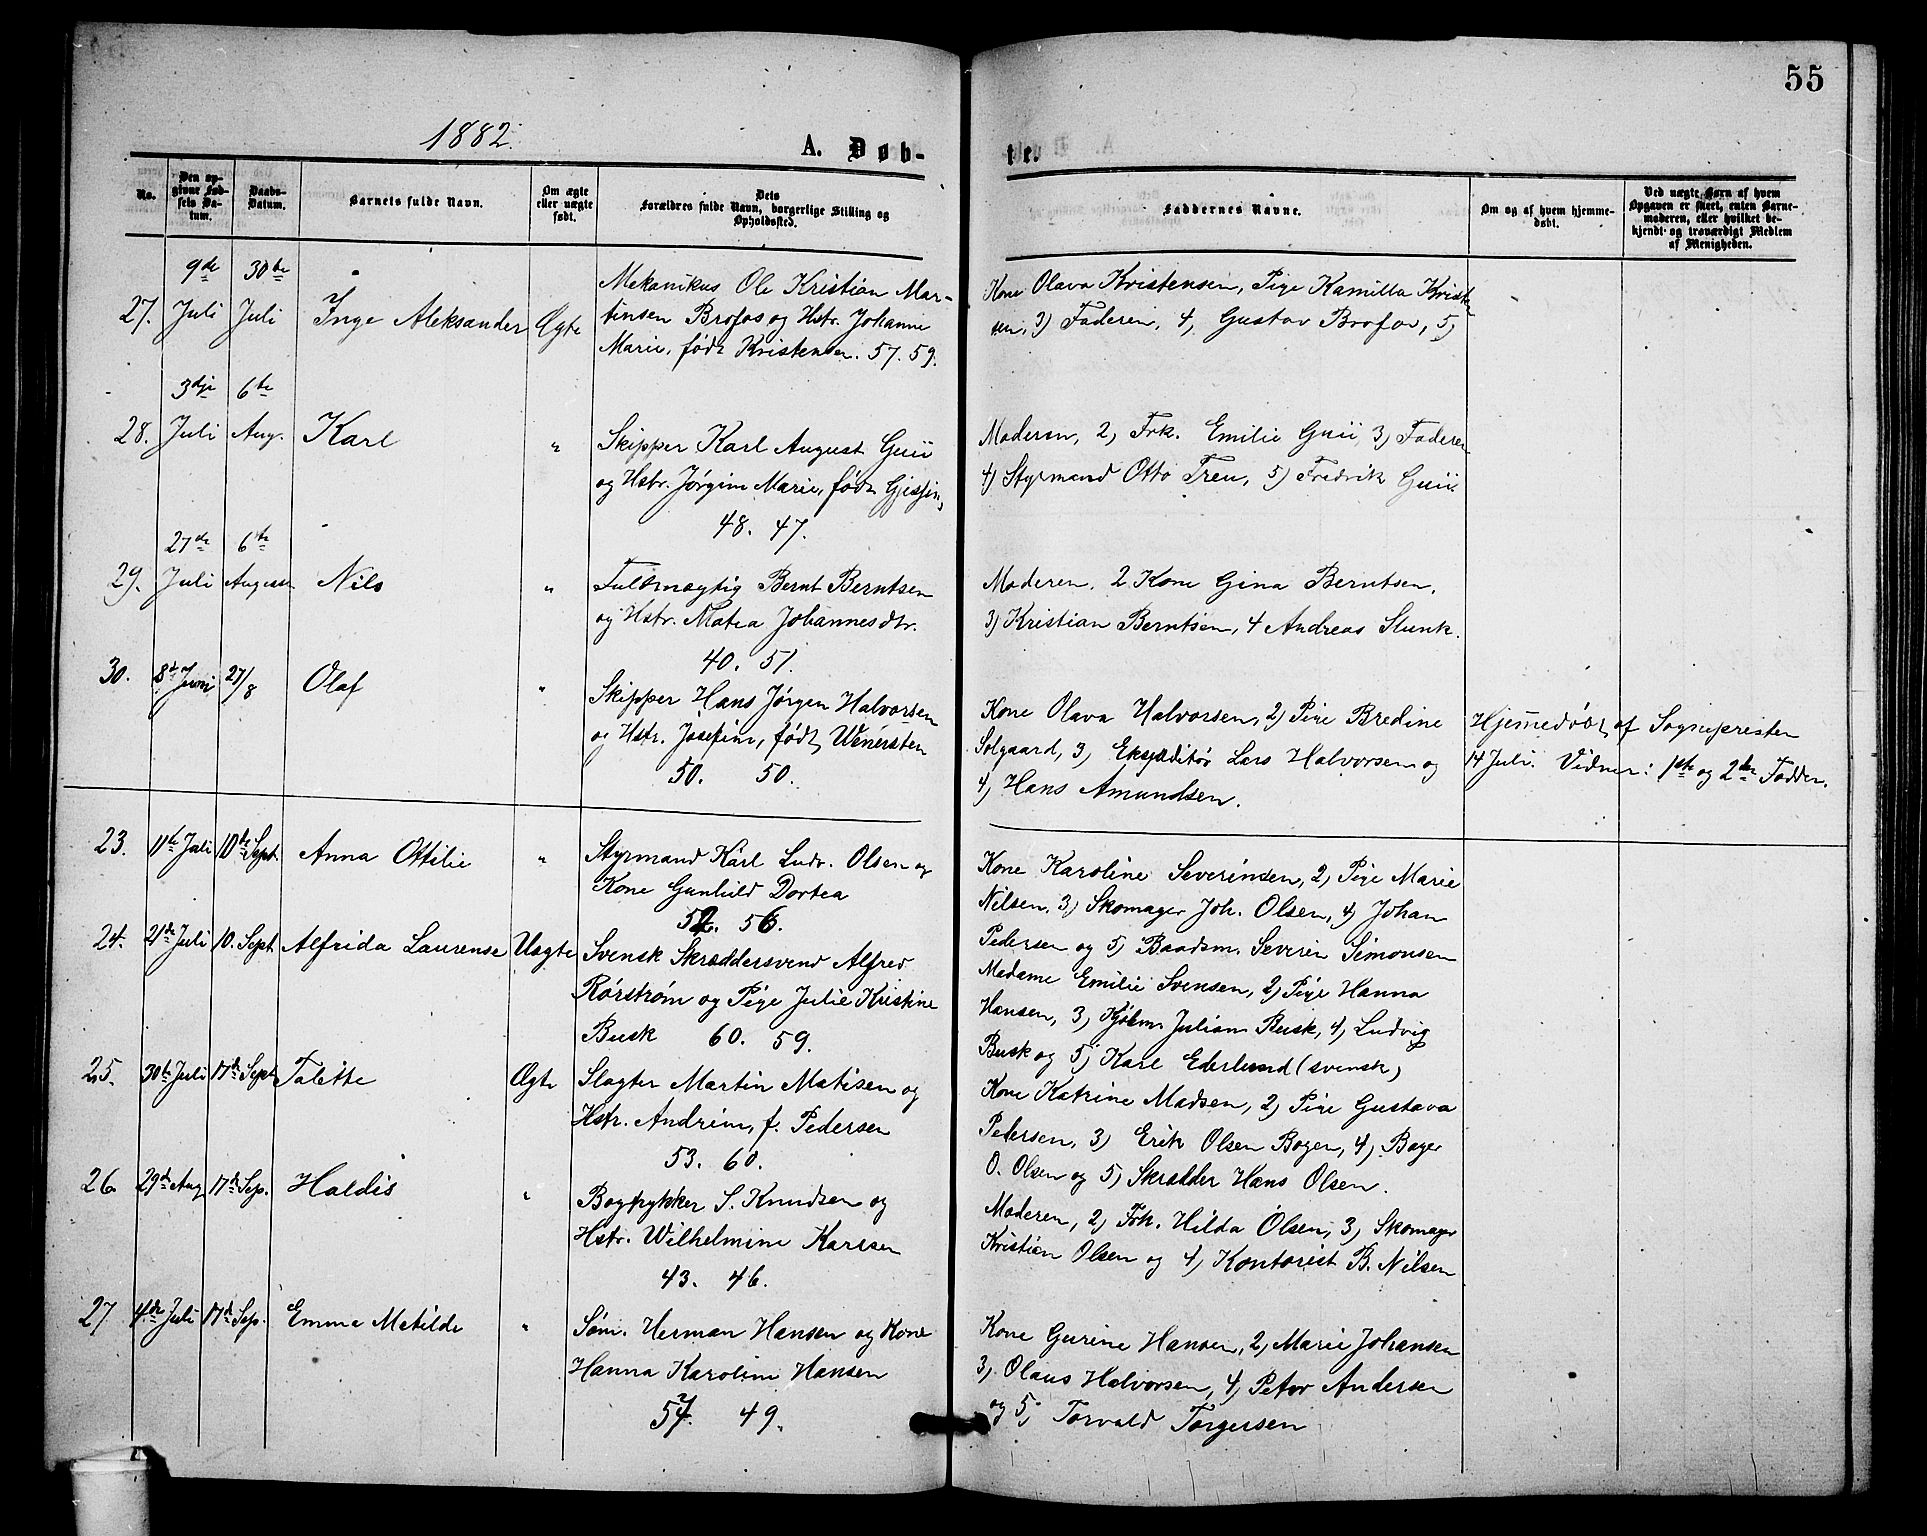 55
1882.
A. Døb-
te.
No.
Den op-
givne Fød-
sels Da-
tum.
Daabs-
Datum.
Barnets fulde Navn.
Om ægte
eller uægte
født.
Dets
Forældres fulde Navn, borgerlige Stilling og
Opholdssted.
Faddernes Navne.
Om og af hvem hjemme-
døbt.
Ved uægte Børn af hvem
Opgaven er skeet, enten Barne-
moderen, eller hvilket be-
kjendt og troværdigt Medlem
af Menigheden.
9de 30te
27. Juli Juli Inge Aleksander Ægte
Mekanikus Ole Kristian Mar-
tinsen Brofos og Hstr. Johanne
Marie, født Kristensen. 57. 59.
Kone Olava Kristensen, Pige Kamilla Krist
sen, 3) Faderen, 4, Gustav Brofos, 5,
3dje 6te
28. Juli Aug. Karl "
Skipper Karl August
og Hstr. Jørgine Marie, født
48. 47.
Moderen, 2, Frk. Emilie 3) Faderen
4) Styrmand Otto 5) Fredrik
27de 6te
29. Juli August Nils "
Fuldmægtig Bernt Berntsen
og Hstr. Matea Johannesdtr.
40. 51.
Moderen, 2 Kone Gina Berntsen,
3) Kristian Berntsen, 4 Andreas
30. 8de Juni 27/8 Olaf "
Skipper Hans Jørgen Halvorsen
og Hstr. Josefine, født Wenersten
50. 50.
Kone Olava Halvorsen, 2) Pige Bredine
Solgaard, 3, Ekspeditør Lars Halvorsen og
4, Hans Amundsen.
Hjemmedøbt af Sognepresten
14 Juli. Vidner: 1ste og 2den Fadder.
23. 11te Juli 10de Sept. Anna Ottilie "
Styrmand Karl Ludv. Olsen og
Kone Gunhild Dortea
52. 56.
Kone Karoline Severinsen, 2, Pige Marie
Nilsen, 3, Skomager Joh. Olsen, 4, Johan
Pedersen og 5) Baadsm. Severin Simonsen
24. 21de Juli 10. Sept. Alfrida Laurense Uægte
Svensk Skræddersvend Alfred
Rörström og Pige Julie Kristine
Busk 60. 59.
Madame Emilie Svensen, 2) Pige Hanna
Hansen, 3, Kjøbm. Julian Busk, 4, Ludvig
Busk og 5, Karl Ederlund (svensk)
25. 30te Juli 17de Sept. Talette Ægte
Slagter Martin Matisen og
Hstr. Andrine, f. Pedersen
53. 60.
Kone Katrine Madsen, 2) Pige Gustava
Pedersen, 3) Erik Olsen Bogen, 4, Bager
O. Olsen og 5) Skrædder Hans Olsen.
26. 29de Aug. 17de Sep. Haldis "
Bogtrykker S. Knudsen og
Hstr. Wilhelmine Karlsen
43. 46.
Moderen, 2, Frk. Hilda Olsen, 3, Skomager
Kristian Olsen og 4, Kontorist B. Nilsen
27 4de Juli 17de Sep. Emma Matilde "
Søm. Herman Hansen og Kone
Hanna Karoline Hansen
57. 49.
Kone Gurine Hansen, 2, Marie Johansen
3, Olaus Halvorsen, 4, Peter Andersen
og 5, Torvald Torgersen